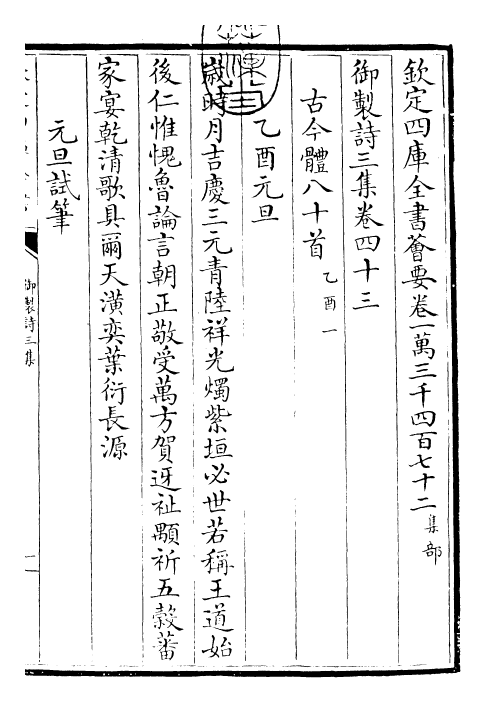 欽定四庫全書薈要卷一萬三千四百七十二集部
御製詩三集卷四十三
古今體八十首乙酉一
乙酉元旦
歲時月吉慶三元青陸祥光燭紫垣必世若稱王道始
後仁惟愧魯論言朝正敬受萬方賀迓祉顒祈五穀蕃
家宴乾清歌具爾天潢奕葉衍長源
元旦試筆
御製詩三集
一